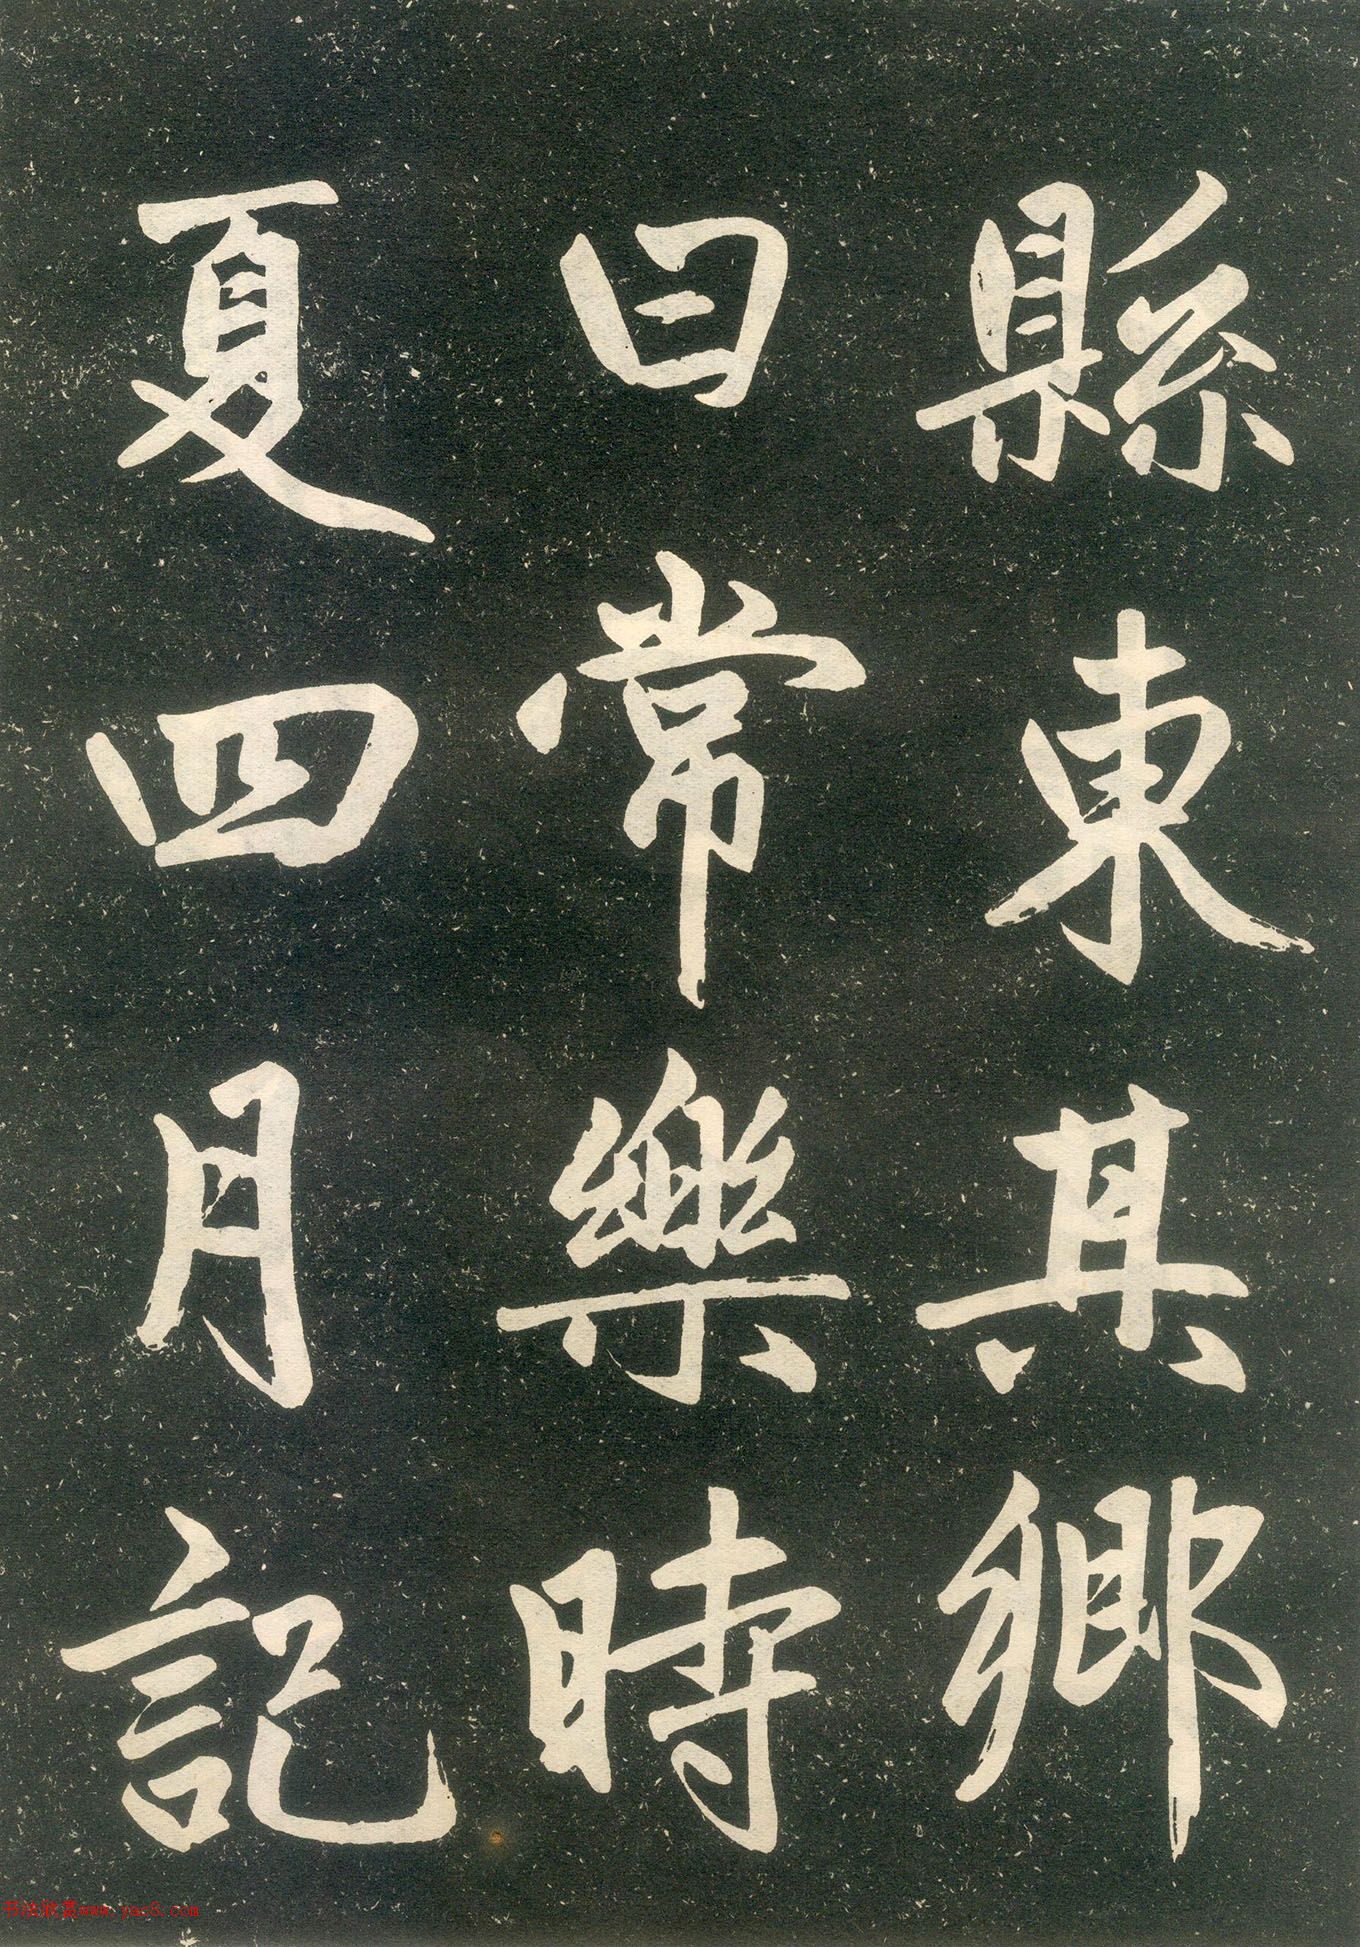 縣東其鄉
曰常樂時
夏四月記
书法欣赏www.yac8.com